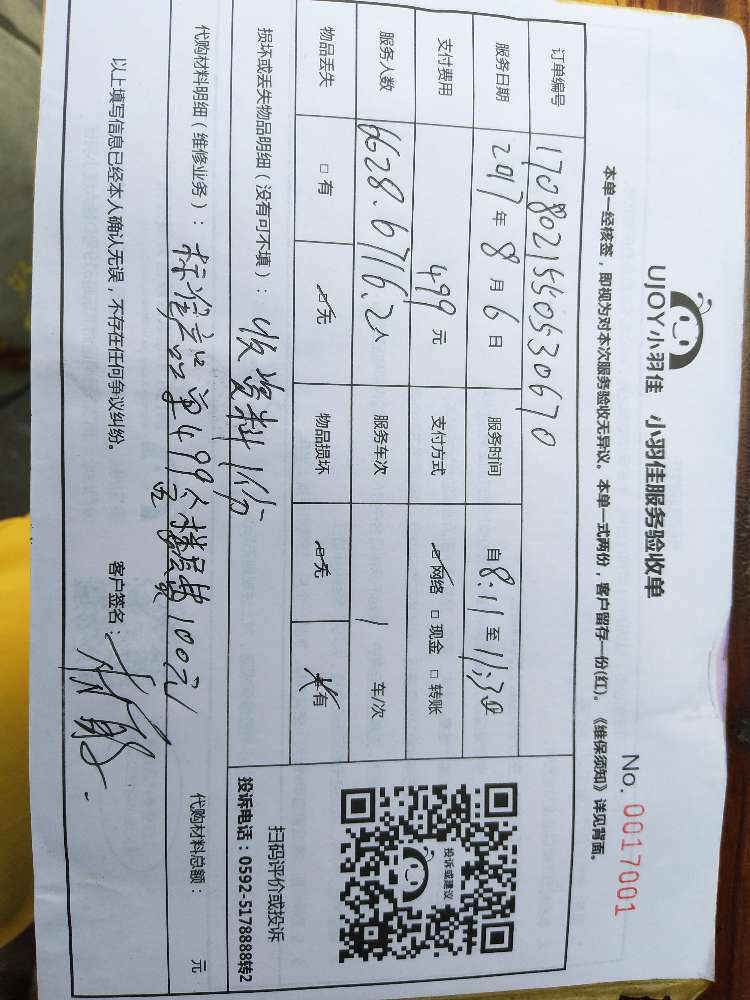 UJOY小羽佳 小羽佳服务验收单
No. 0017001
本单一经核签，即视为对本次服务验收无异议。本单一式两份，客户留存一份(红)。《维保须知》详见背面。
订单编号 170802155053067０
服务日期 2017年8月6日 服务时间 自8:11至11:30
支付费用 499元 支付方式 ☑网络 □现金 □转账
服务人数 6628.6716.2人 服务车次 1 车/次
物品丢失 □有 ☑无 物品损坏 ☑无 有
投诉或建议
扫码评价或投诉
投诉电话：0592-5178888转2
损坏或丢失物品明细（没有可不填）： 收资料1份
代购材料明细（维修业务）： 标准产品单499含楼层费100元
代购材料总额： 元
以上填写信息已经本人确认无误，不存在任何争议纠纷。 客户签名：